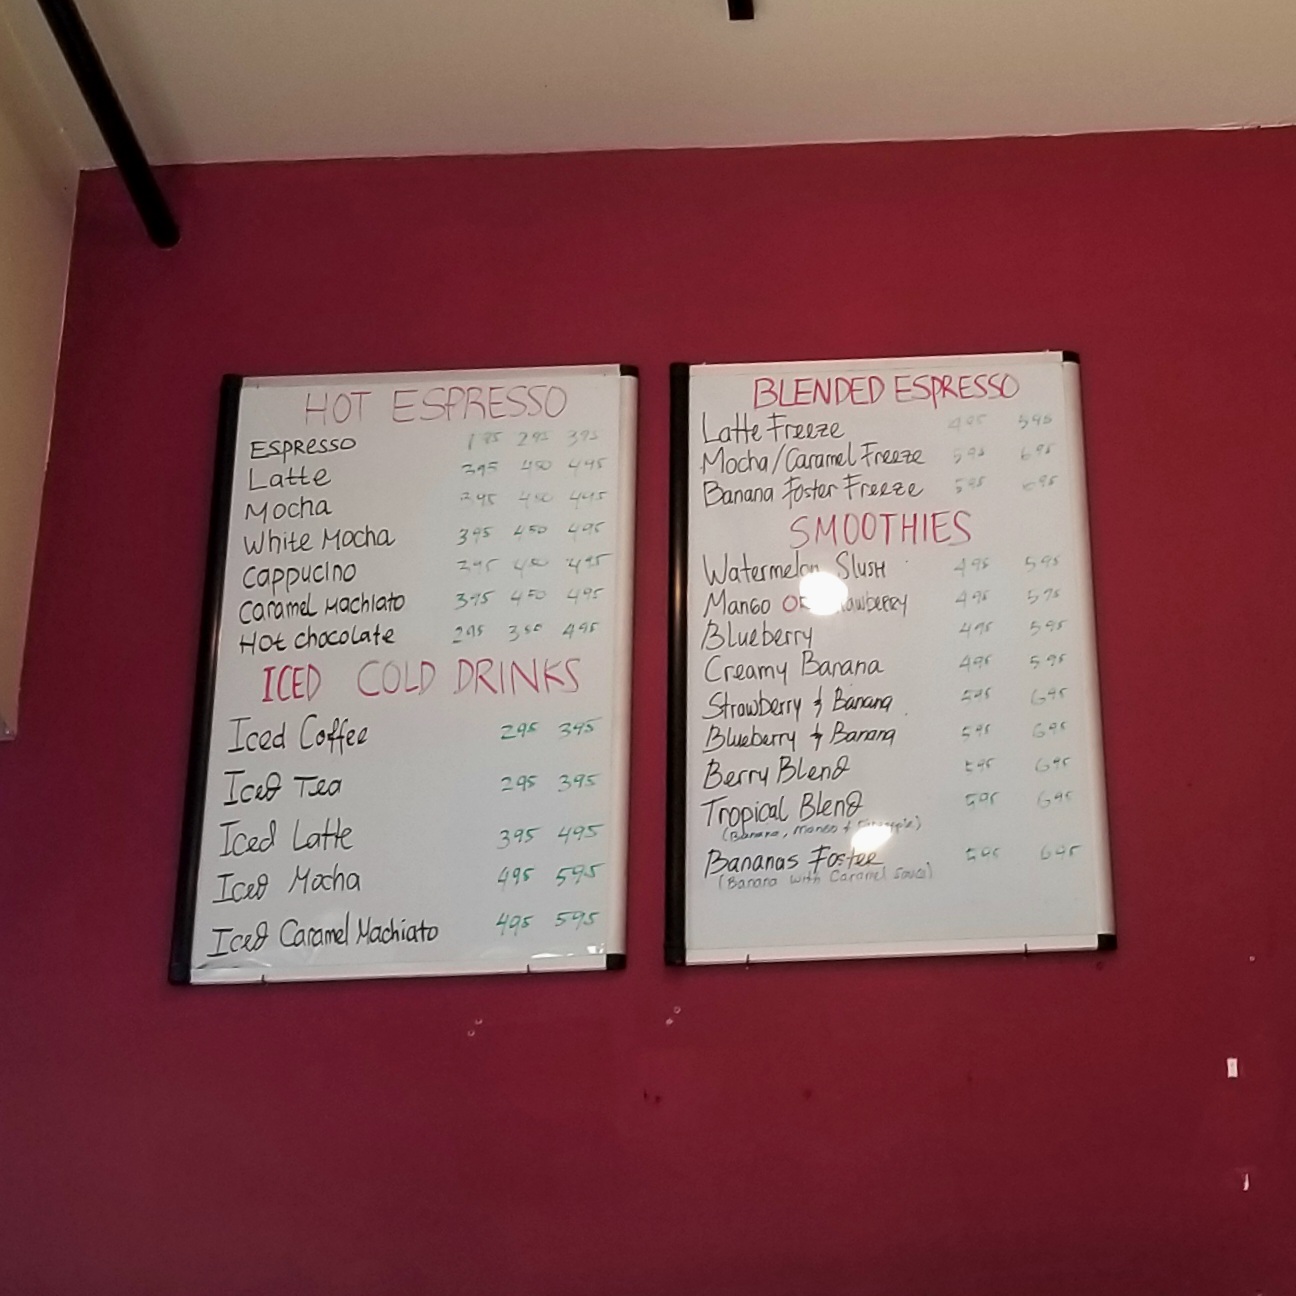 HOT ESPRESSO
ESPRESSO 195 295 395
Latte 395 450 495
Mocha 395 450 495
White Mocha 395 450 495
Cappucino 395 450 495
Caramel Machiato 395 450 495
Hot chocolate 295 350 495
ICED COLD DRINKS
Iced Coffee 295 395
Iced Tea 295 395
Iced Latte 395 495
Iced Mocha 495 595
Iced Caramel Machiato 495 595
BLENDED ESPRESSO
Latte Freeze 495 595
Mocha/Caramel Freeze 595 695
Banana Foster Freeze 595 695
SMOOTHIES
Watermelon Slush 495 595
Mango OR 495 595
Blueberry 495 595
Creamy Banana 495 595
Strawberry & Banana 595 695
Blueberry & Banana 595 695
Berry Blend 595 695
Tropical Blend 595 695
(Banana, Mango &
Bananas Foster 595 695
(Banana with Caramel sauce)